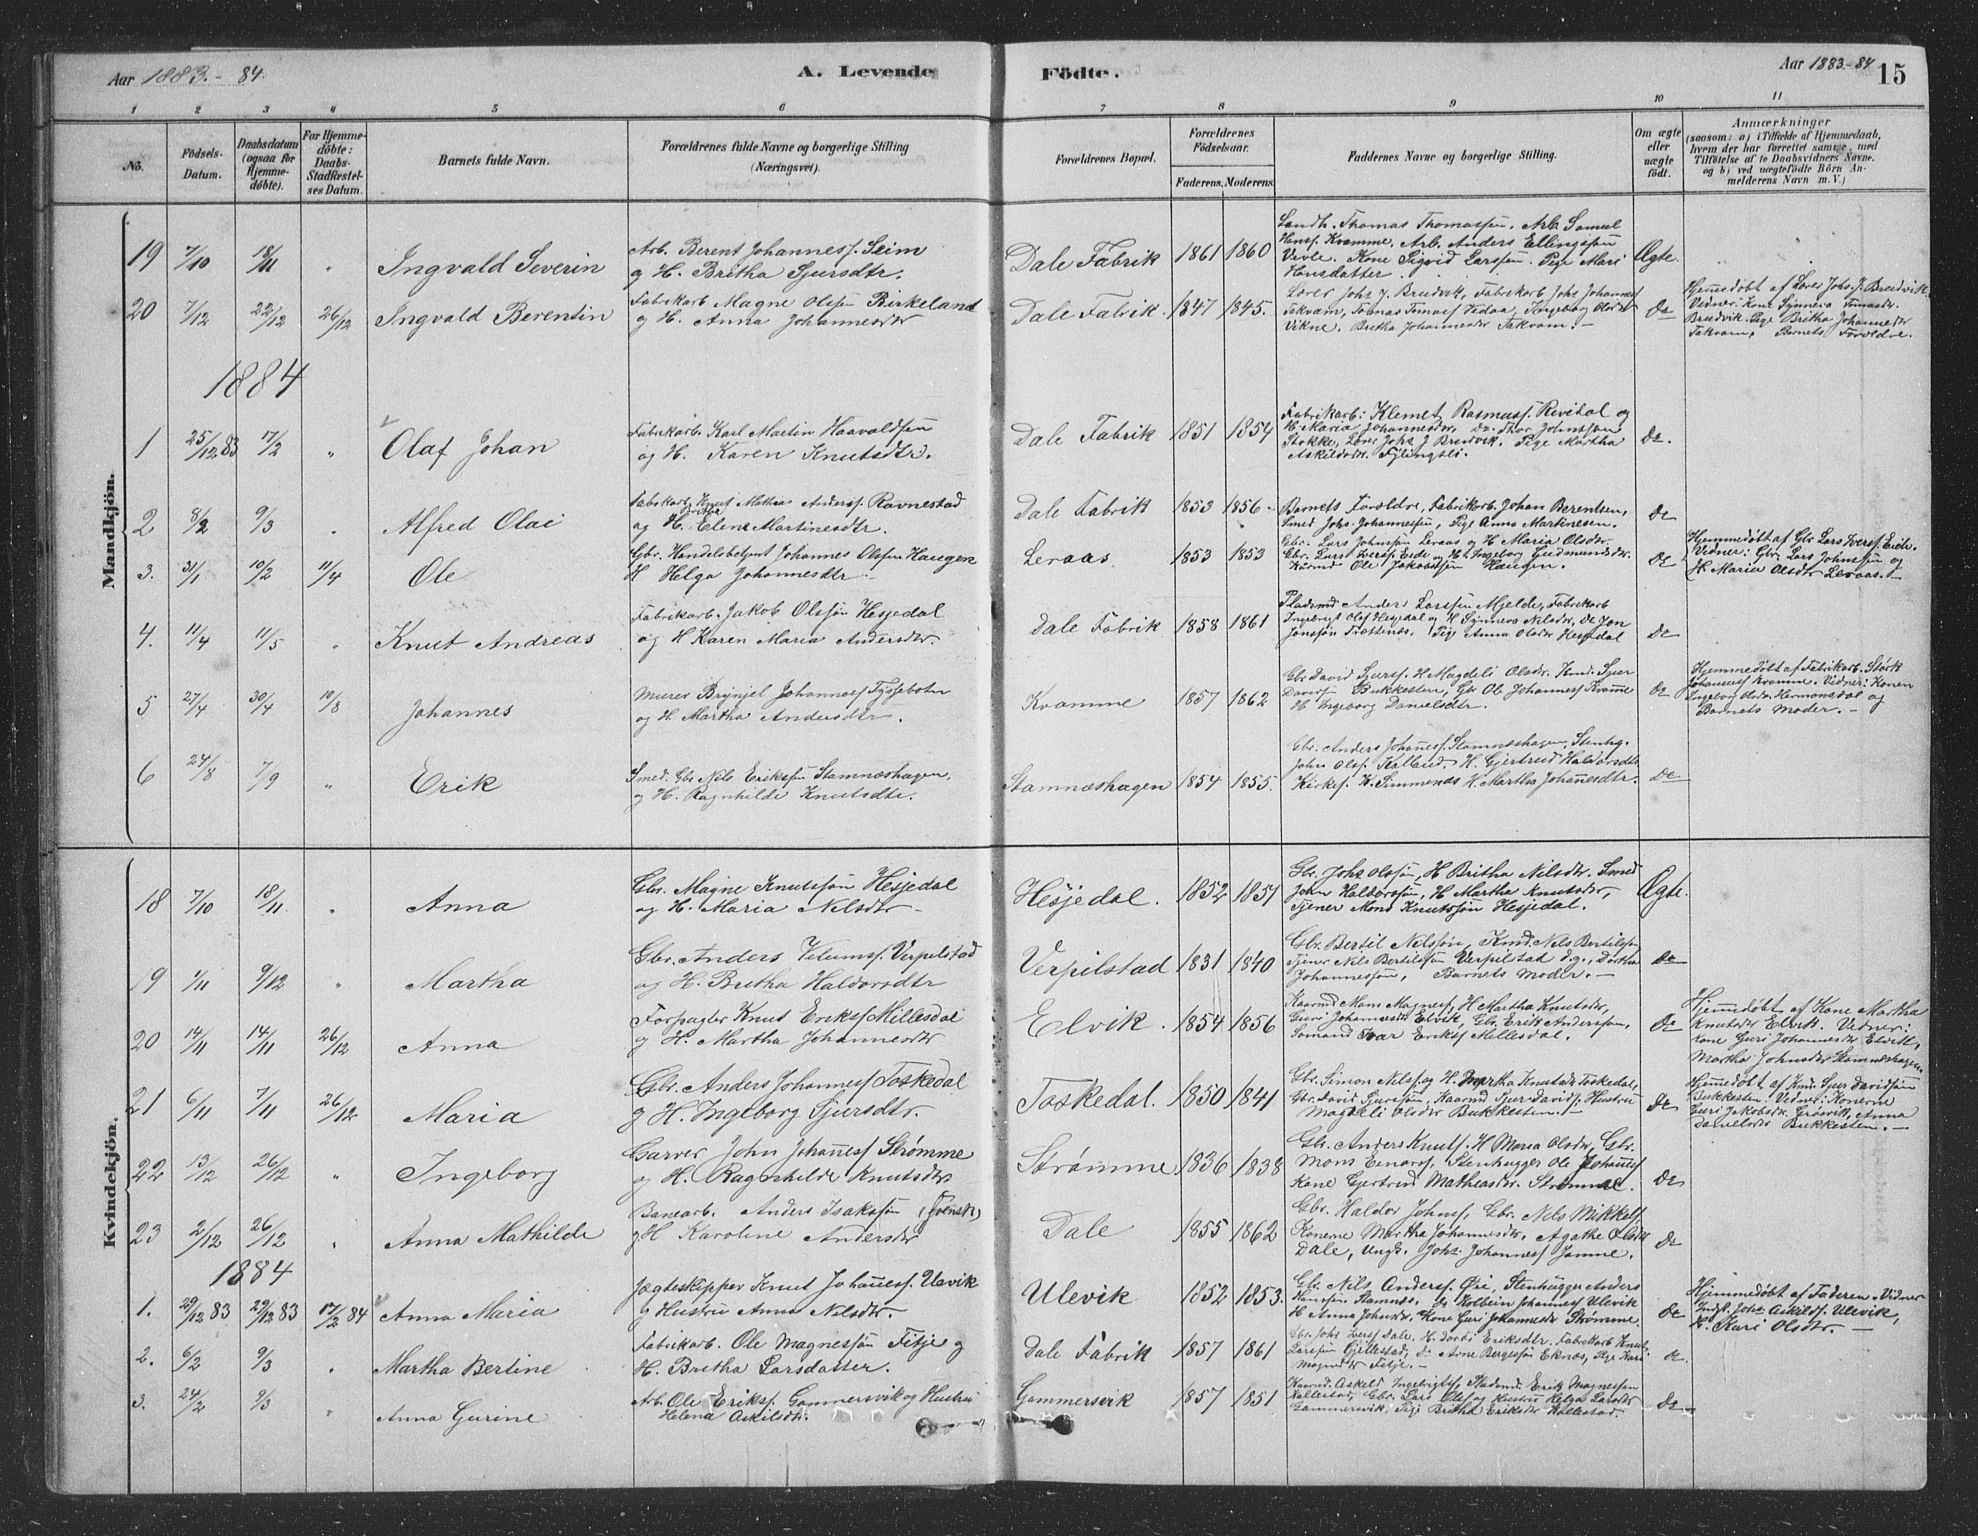 Aar 1883.-84.
A. Levende
Födte.
Aar 1883.-84
15
1 2 3 4 5 6 7 8 9 10 11
No.
Födsels-Datum.
Daabsdatum (ogsaa för Hjemme-döbte).
For Hjemme-döbte: Daabs-Stadfæstel-ses Datum.
Barnets fulde Navn.
Forældrenes fulde Navne og borgerlige Stilling (Næringsvei).
Forældrenes Bopæl.
Forældrenes Födselsaar.
Faderens. Moderens.
Faddernes Navne og borgerlige Stilling.
Om ægte eller uægte födt.
Anmærkninger
(saasom: a) i Tilfælde af Hjemmedaab, hvem der har forrettet samme, med Tilföielse af to Daabsvidners Navne, og b) ved uægtefödte Börn An-melderens Navn m. V.)
Mandkjön.
19 7/10 18/11 " Ingvald Severin
Arb. Berent Johanness. Seim
og H. Britha Sjursdtr.
Dale Fabrik 1861 1860
Landh. Thomas Thomassen. Arb. Samuel
Hanss. Kvamme, Arb. Anders Ellingsen
Kone Sigrid Larssen. Pige Mari
Hansdatter.
Ægte.
20 7/12 22/12 26/12 Ingvald Berentin
Fabrikarb. Magne Olsen Birkeland
og H. Anna Johannesdtr
Dale Fabrik. 1847 1845.
Lærer Johs J. Bredvik, Fabrikarb Johs Johannes
Takvam, Tomas Tomass Ingeborg Olsdtr
Vikne. Britha Johannesdtr Takvam.
Do
Hjemmedöbt af Lærer Johs. J. Bredvik,
Vidner: Kone Synneva Tomasdtr
Bredvik. Pige Britha Johannesdtr
Takvam, Barnets Forældre.
1884
1 25/12 83 17/2 " Olaf Johan
Fabrikarb. Karl Martin Haavaldsen
og H. Karen Knutsdtr.
Dale Fabrik 1851 1854
Fabrikarb: Klemet Rasmuss. Revidal og
H. Maria Johannesdtr, Do. Thor Johnssøn
Stokke, Lærer Johs J Bredvik. Pige Martha
Askildsdtr. Fylingsli.
Do.
2 8/2 9/3 " Alfred Olai
Fabrikarb Knut Mathias Anderss. Ravnestad
og H. Britha Elene Martinesdtr.
Dale Fabrik 1853 1856
Barnets Forældre, Fabrikarb. Johan Berentsen,
Smed Johs. Johannessen, Pige Anna Martinesen.
Do
3. 31/1 10/2 11/4 Ole
Gbr. Handelsbetjent Johannes Olssen Haugen
H Helga Johannesdtr
Leraas. 1853 1853
Gbr. Lars Johnsøn Leraas og H Maria Olsdtr.
Gbr. Lars Iverss. Eide og H. Ingeborg Gudmundsdtr.
Kaarmd Ole Jakobssen Haugen.
Do
Hjemmedöbt af Gbr Lars Iverss. Eide.
Vidner: Gbr. Lars Johnsen og
H. Maria Olsdtr Leraas.
4. 11/4 11/5 " Knut Andreas
Fabrikarb. Jakob Olssøn Hesjedal
og H Karen Maria Andersdtr.
Dale Fabrik 1858 1861
Pladsmd Anders Larssen Mjelde, Fabrikarb
Ingebrigt Olss Hesjedal og H Synneva Nilsdtr, Do Jon
Pige Anna Olsdtr Hesjedal
Do
5 27/4 30/4 10/8 Johannes
Murer Brynjel Johanness Fysseboten
og H. Martha Andersdtr.
Kvamme 1857 1862
Gbr David Sjurss. H Magdeli Olsdtr. Kmd. Sjur
Davidss Bukkesten, Gbr Ole Johanness Kvamme
H Ingeborg Danielsdtr.
Do
Hjemmedöbt af Fabrikarb. Størk
Johanness Kvamme. Vidner: Konen
Ingeborg Olsdtr. Hermonsdal og
Barnets Moder.
6 24/8 7/9 " Erik
Smed. Gbr Nils Erikssen Stamneshagen,
og H. Ragnhilde Knutsdtr.
Stamneshagen 1854 1855.
Gbr. Anders Johaness. Stamneshagen, Stenhg.
John Olss. Kalland. H. Gjertrud Haldorsdtr
Kirkes. K. Simmenes H. Martha Johannesdtr.
Do
Kvindekjön.
18 7/10 18/11 " Anna
Gbr. Magne Knutssøn Hesjedal
og H. Maria Nilsdtr
Hesjedal. 1852 1857
Gbr. Johs Olssøn, H Britha Nilsdtr. Smed
John Haldorssøn, H Martha Knutsdtr,
Tjener Mons Knutssøn Hesjedal.
Ægte.
19 1/11 9/12 " Martha
Gbr. Anders Velums. Verpilstad
og H. Britha Haldorsdtr
Verpilstad 1831 1840
Gbr. Bertil Nilssøn, Kmd. Nils Bertilssen
Tjener Nils Bertilssøn Verpilstad d.y., Dorthea
Johannessøn, Barnets Moder.
Do
20 14/11 14/11 26/12 Anna
Forpagter Knut Erikss Millesdal
og H. Martha Johannesdtr
Elvik. 1854 1856
Kaarmd Mons Magness, H Martha Knutsdtr,
Guri Johannesdtr Elvik, Gbr. Erik Anderssøn,
Sømand Ivar Erikss Millesdal.
Do
Hjemmedöbt af Kone Martha
Knutsdtr Elvik. Vidner:
Kone Guri Johannesdtr Elvik,
Martha Johnsdtr Stamneshagen.
21 6/11 7/11 26/12 Maria
Gbr. Anders Johanness Toskedal
og H. Ingeborg Sjursdtr.
Toskedal. 1850 1841
Gbr. Simon Nilss. og H. Martha Knutsdtr Toskedal,
Gbr. David Sjurssøn, Kaarmd Sjur Davids. Hustru
Magdeli Olsdtr Bukkesten.
Do
Hjemmedöbt af Kmd. Sjur Davidssøn
Bukkesten. Vidner: Konerne
Guri Jakobsdtr. Anna
Danielsdtr Bukkesten.
22 13/12 26/12 " Ingeborg
Garver John Johaness Strømme
og H. Ragnhilde Knutsdtr
Strømme 1836 1838
Gbr. Anders Knuts. H Maria Olsdtr, Gbr.
Mons Einarss, Stenhugger Ole Johaness
Kone Gjertrud Mathiasdtr. Strømme.
Do
23 2/12 26/12 " Anna Mathilde
Banearb. Anders Isakssøn (Svensk)
og H Karoline Andersdtr
Dale 1855 1862
Gbr. Haldor Johnss. Gbr. Nils Mikkels.
Konerne Martha Johannesdtr. Agathe Olsdtr
Dale, Ungk. Johs. Johanness Jamne.
Do
1884
1. 29/12 83 29/12 83 17/2 84 Anna Maria
Jægteskipper Knut Johaness. Ulevik
og Hustru Anna Nilsdtr.
Ulevik 1852 1853.
Gbr. Nils Anderss. Øie, Stenhugger Anders
Hanssen Stamnes, Do Kolbein Johanness Ulevik
H Anna Johnsdtr. Kone Guri Johannesdtr Strømme
Do
Hjemmedöbt af Faderen. Vidner
Indst. Johs Askilds. Ulevik,
K. Kari Olsdtr.
2. 6/2 9/3 " Martha Bertine
Fabrikarb. Ole Magnessøn Fitje og
H. Britha Larsdatter.
Dale Fabrik 1857 1861
Gbr. Johs Iverss Dale, H. Dorthi Eriksdtr, Fabrikarb Knut
Larssen Gjellestad, Do Arne Bergessøn Eknæs, Pige Kari
Magnesdtr Fitje.
Do.
3. 24/2 9/3 " Anna Gurine
Arb. Ole Erikss. Gammersvik og Hustru
Helena Askildsdtr.
Gammersvik 1857 1851
Kaarmd. Askeld Ingebrigts, Pladsmd. Erik Magnessen
Kallestad, Gbr. Lars Olss og Hustru Helga Larsdtr
Gammersvik, Pige Britha Eriksdtr Kallestad.
Do